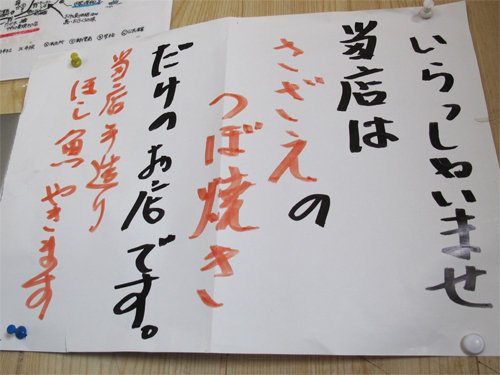 いらっしゃいませ
当店は
さざえの
つぼ焼き
だけのお店です。
当店手造り
ほし魚やきます